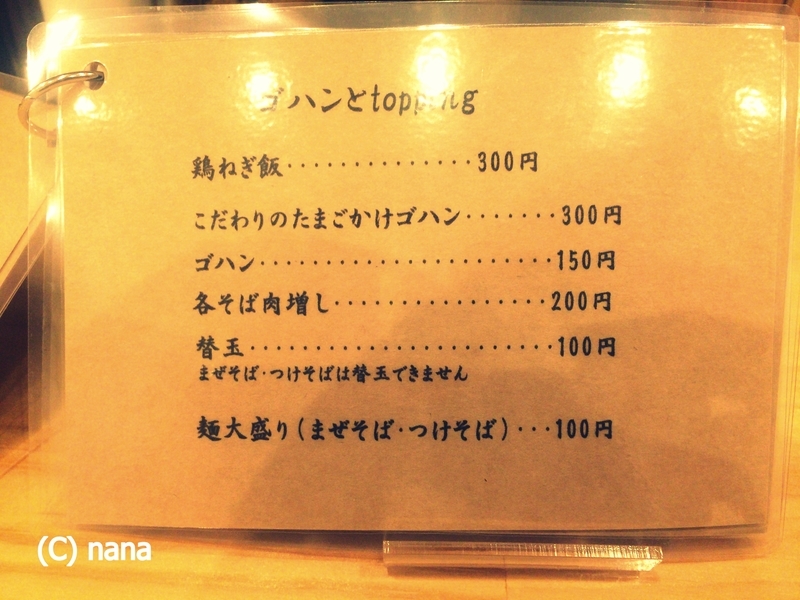 ゴハンとtopping
鶏ねぎ飯・・・・・・・・・・・・・・・300円
こだわりのたまごかけゴハン・・・・・・・300円
ゴハン・・・・・・・・・・・・・・・・・・・・・・・150円
各そば肉増し・・・・・・・・・・・・・・・・・200円
替玉・・・・・・・・・・・・・・・・・・・・・・・・100円
まぜそば・つけそばは替玉できません
麺大盛り(まぜそば・つけそば)・・・100円
(C) nana